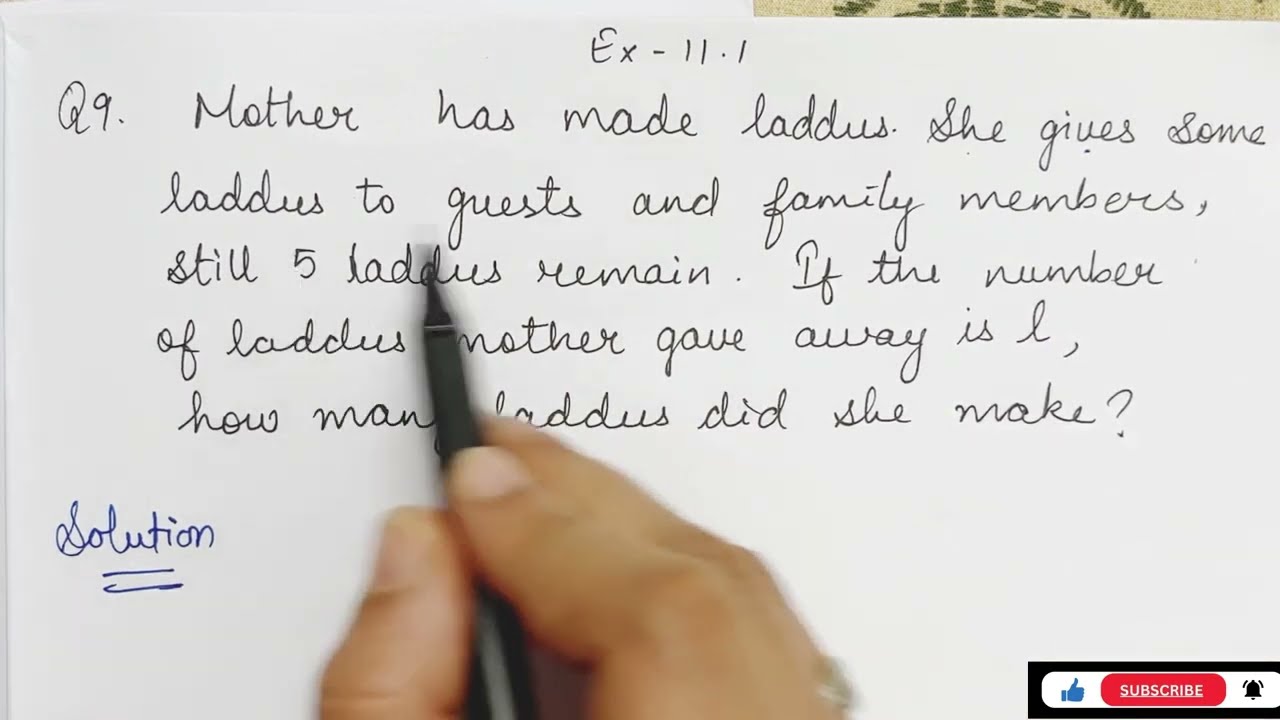 Ex - 11.1
Q9. Mother has made laddus. She gives some
laddus to guests and family members,
still 5 laddus remain. If the number
of laddus mother gave away is l,
how many laddus did she make?
Solution
SUBSCRIBE